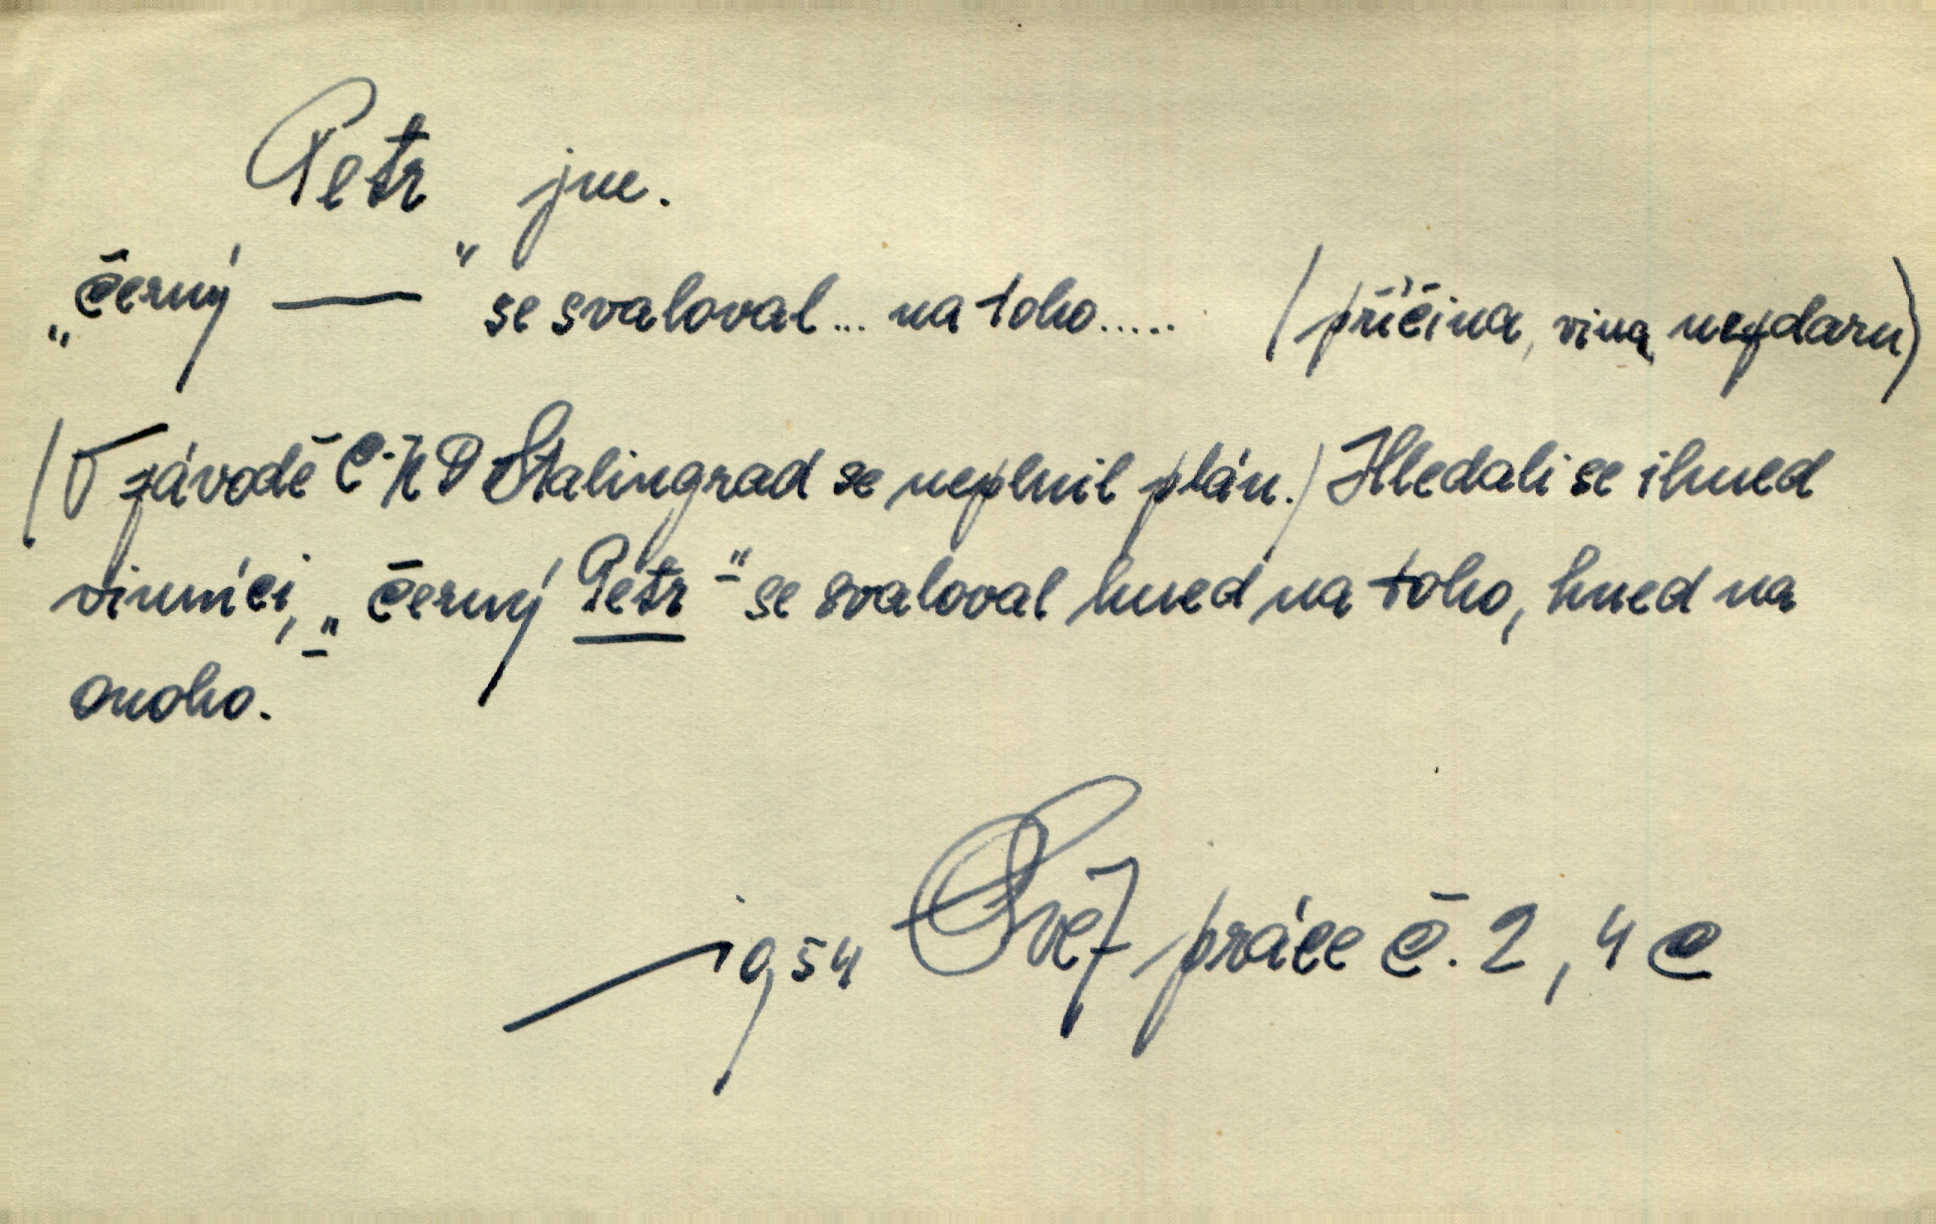 Petr jm.
„černý —" se svaloval... na toho..... (příčina, vina nezdaru)
(V závodě ČKD Stalingrad se neplnil plán.) Hledali se ihned
viníci, „černý Petr" se svaloval hned na toho, hned na
onoho.
1954 Svět práce č. 2, 4 c